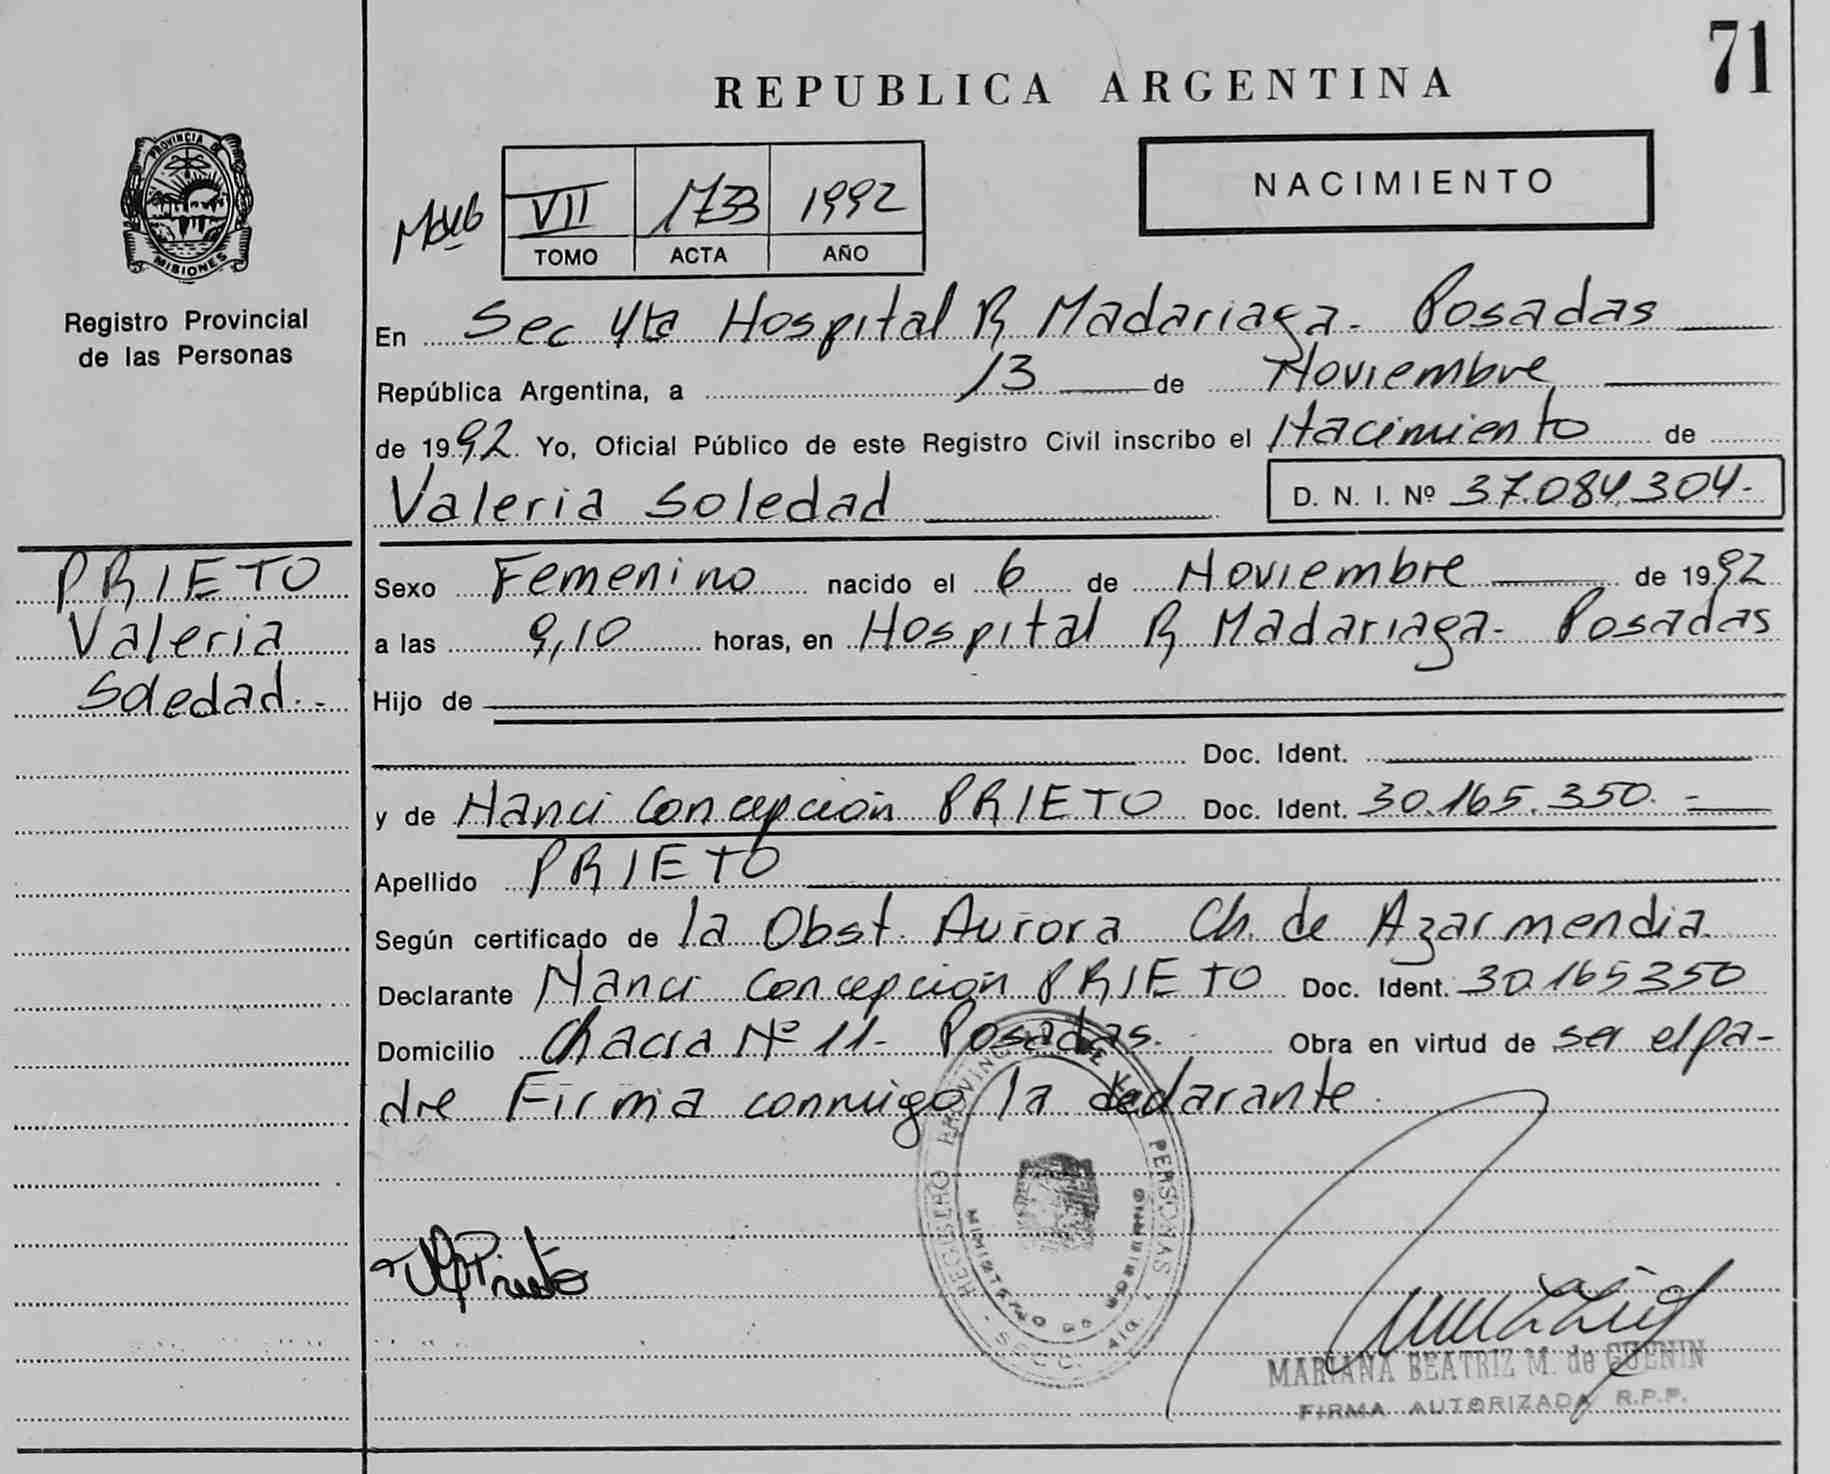 71
REPUBLICA ARGENTINA
NACIMIENTO
VII 1733 1992
TOMO ACTA AÑO
PROVINCIA DE
MISIONES
Registro Provincial
de las Personas
En Sec 4ta Hospital R Madariaga - Posadas
República Argentina, a 13 de Noviembre
de 1992. Yo, Oficial Público de este Registro Civil inscribo el Nacimiento de
Valeria Soledad
D. N. I. Nº 37.084.304.-
PRIETO
Valeria
Soledad.-
Sexo Femenino nacido el 6 de Noviembre de 1992
a las 9,10 horas, en Hospital R Madariaga - Posadas
Hijo de
Doc. Ident.
y de Nanci Concepción PRIETO Doc. Ident. 30.165.350.-
Apellido PRIETO
Según certificado de la Obst. Aurora Ch. de Azarmendia.
Declarante Nanci Concepción PRIETO Doc. Ident. 30.165350
Domicilio Chacra Nº 11- Posadas. Obra en virtud de ser el pa-
dre Firma conmigo la declarante.
REGISTRO PROVINCIAL DE LAS PERSONAS
MINISTERIO DE GOBIERNO
SECC. 4ta.
Prieto
MARIANA BEATRIZ M. de GUENIN
FIRMA AUTORIZADA R.P.P.